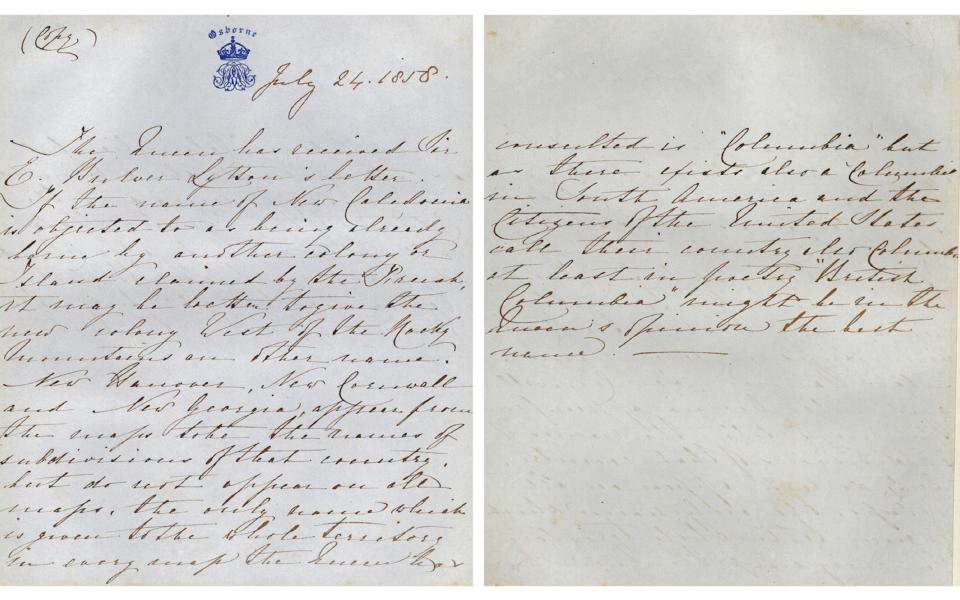 (Copy)
Osborne
July 24. 1858.
The Queen has received Sir
E. Bulwer Lytton's letter.
If the name of New Caledonia
is objected to as being already
borne by another colony or
Island claimed by the French,
it may be better to give the
new colony West of the Rocky
Mountains an other name.
New Hanover, New Cornwall
and New Georgia, appear from
the maps to be the names of
subdivisions of that country,
but do not appear on all
maps. The only name which
is given to the whole territory
in every map the Queen has
consulted is "Columbia" but
as there exists also a Columbia
in South America and the
Citizens of the United States
call their country also Columbia
at least in poetry "British
Columbia" might be in the
Queen's opinion the best
name.